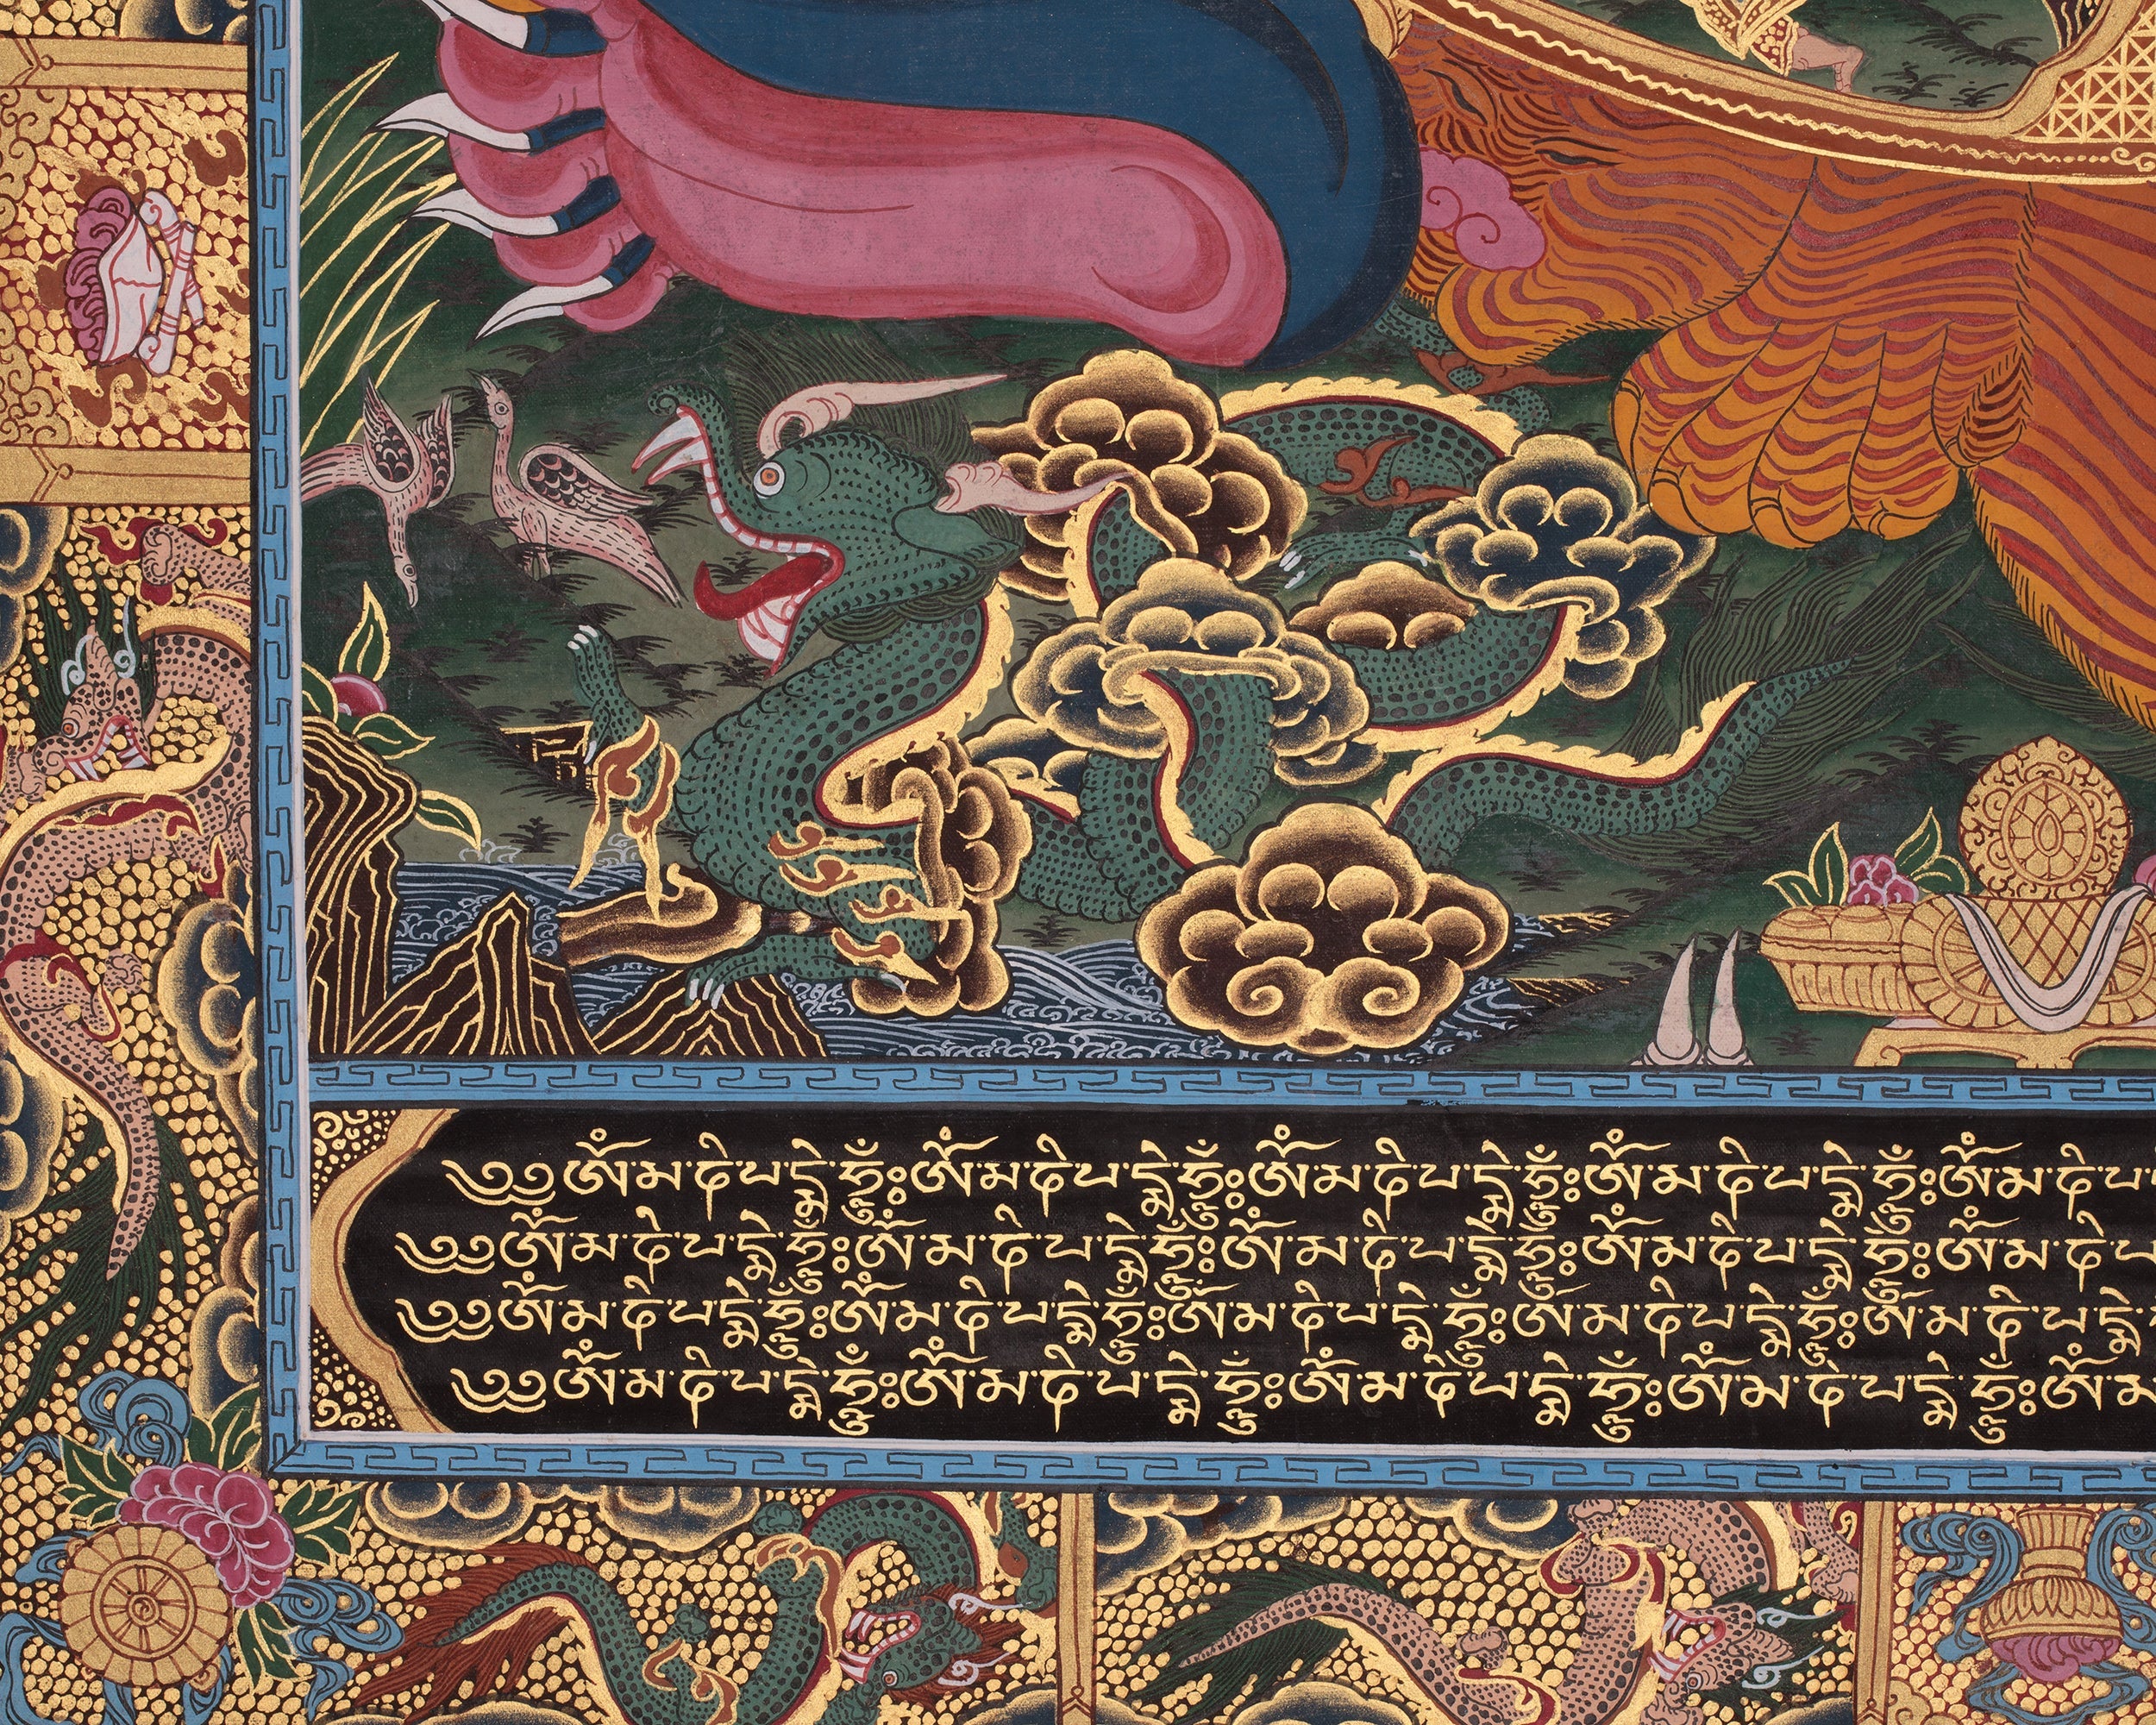 ༄༅ཨོཾ་མ་ཎི་པ་དྨེ་ཧཱུྃ༔ཨོཾ་མ་ཎི་པ་དྨེ་ཧཱུྃ༔ཨོཾ་མ་ཎི་པ་དྨེ་ཧཱུྃ༔ཨོཾ་མ་ཎི་པ་དྨེ་ཧཱུྃ༔ཨོཾ་མ་ཎི་པ་
༄༅ཨོཾ་མ་ཎི་པ་དྨེ་ཧཱུྃ༔ཨོཾ་མ་ཎི་པ་དྨེ་ཧཱུྃ༔ཨོཾ་མ་ཎི་པ་དྨེ་ཧཱུྃ༔ཨོཾ་མ་ཎི་པ་དྨེ་ཧཱུྃ༔ཨོཾ་མ་ཎི་པ
༄༅ཨོཾ་མ་ཎི་པ་དྨེ་ཧཱུྃ༔ཨོཾ་མ་ཎི་པ་དྨེ་ཧཱུྃ༔ཨོཾ་མ་ཎི་པ་དྨེ་ཧཱུྃ༔ཨོཾ་མ་ཎི་པ་དྨེ་ཧཱུྃ༔ཨོཾ་མ་ཎི་པ་དྨེ
༄༅ཨོཾ་མ་ཎི་པ་དྨེ་ཧཱུྃ༔ཨོཾ་མ་ཎི་པ་དྨེ་ཧཱུྃ༔ཨོཾ་མ་ཎི་པ་དྨེ་ཧཱུྃ༔ཨོཾ་མ་ཎི་པ་དྨེ་ཧཱུྃ༔ཨོཾ་མ